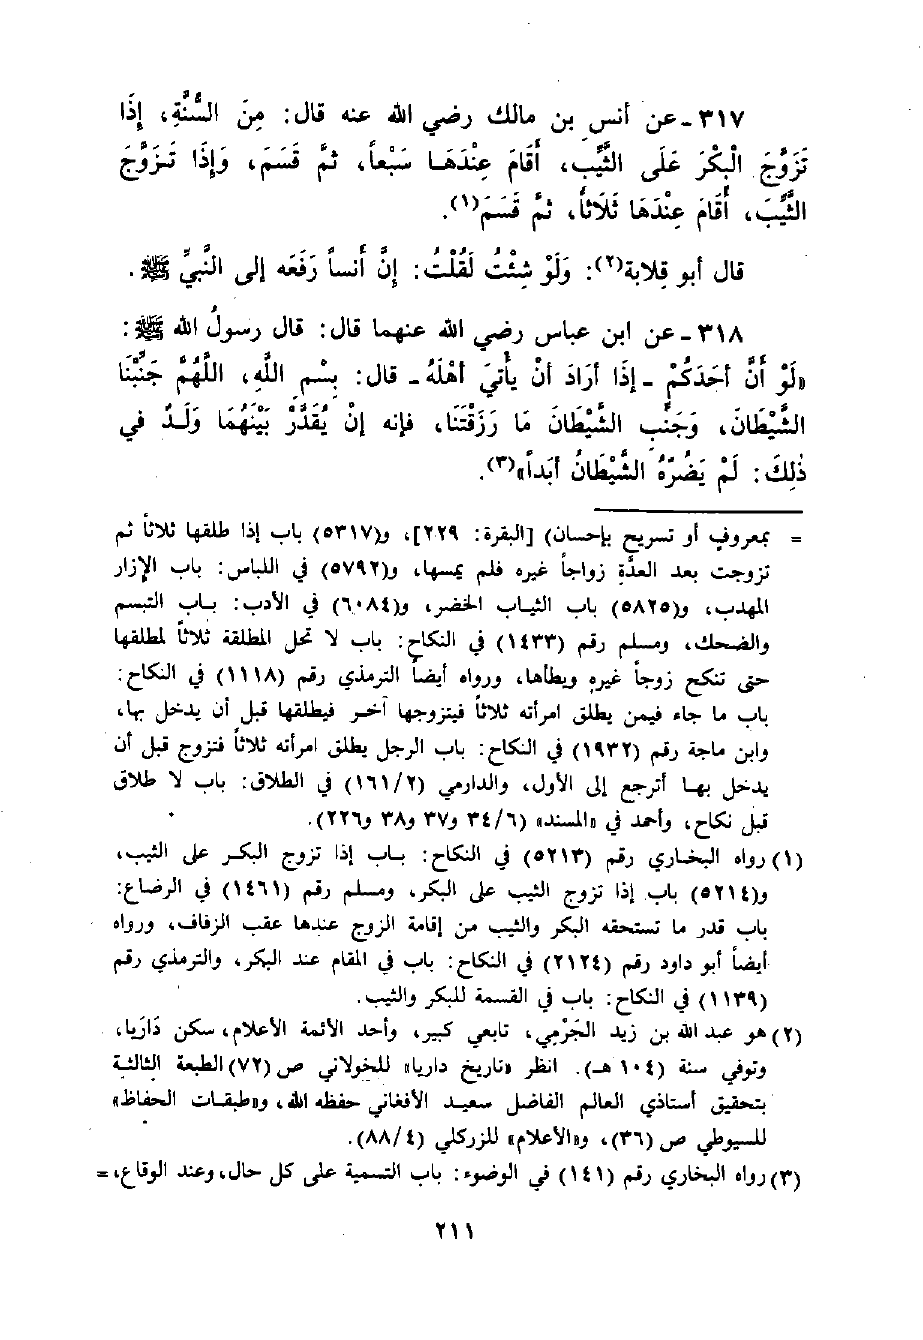 ٣١٧ ـ عن أنس بن مالك رضي الله عنه قال: مِنَ السُّنَّةِ، إِذَا
تَزَوَّجَ الْبِكْرَ عَلَى الثَّيِّبِ، أَقَامَ عِنْدَهَا سَبْعاً، ثُمَّ قَسَمَ، وَإِذَا تَزَوَّجَ
الثَّيِّبَ، أَقَامَ عِنْدَهَا ثَلَاثاً، ثُمَّ قَسَمَ(١).
قال أبو قلابة(٢): وَلَوْ شِئْتُ لَقُلْتُ: إِنَّ أَنَساً رَفَعَه إلى النَّبِيِّ ﷺ.
٣١٨ ـ عن ابن عباس رضي الله عنهما قال: قال رسولُ الله ﷺ:
«لَوْ أَنَّ أَحَدَكُمْ ـ إِذَا أَرَادَ أَنْ يَأْتِيَ أَهْلَهُ ـ قال: بِسْمِ اللَّهِ، اللَّهُمَّ جَنِّبْنَا
الشَّيْطَانَ، وَجَنِّبِ الشَّيْطَانَ مَا رَزَقْتَنَا، فإنه إِنْ يُقَدَّرْ بَيْنَهُمَا وَلَدٌ في
ذٰلِكَ: لَمْ يَضُرَّهُ الشَّيْطَانُ أَبَداً»(٣).
= بمعروفٍ أو تسريح بإحسان) [البقرة: ٢٢٩]، و(٥٣١٧) باب إذا طلقها ثلاثاً ثم
تزوجت بعد العدَّةِ زواجاً غيره فلم يمسها، و(٥٧٩٢) في اللباس: باب الإزار
المهدب، و(٥٨٢٥) باب الثياب الخضر، و(٦٠٨٤) في الأدب: باب التبسم
والضحك، ومسلم رقم (١٤٣٣) في النكاح: باب لا تحل المطلقة ثلاثاً لمطلقها
حتى تنكح زوجاً غيره ويطأها، ورواه أيضاً الترمذي رقم (١١١٨) في النكاح:
باب ما جاء فيمن يطلق امرأته ثلاثاً فيتزوجها آخر فيطلقها قبل أن يدخل بها،
وابن ماجة رقم (١٩٣٢) في النكاح: باب الرجل يطلق امرأته ثلاثاً فتزوج قبل أن
يدخل بها أترجع إلى الأول، والدارمي (١٦١/٢) في الطلاق: باب لا طلاق
قبل نكاح، وأحمد في «المسند» (٣٤/٦ و٣٧ و٣٨ و٢٢٦).
(١) رواه البخاري رقم (٥٢١٣) في النكاح: باب إذا تزوج البكر على الثيب،
و(٥٢١٤) باب إذا تزوج الثيب على البكر، ومسلم رقم (١٤٦١) في الرضاع:
باب قدر ما تستحقه البكر والثيب من إقامة الزوج عندها عقب الزفاف، ورواه
أيضاً أبو داود رقم (٢١٢٤) في النكاح: باب في المقام عند البكر، والترمذي رقم
(١١٣٩) في النكاح: باب في القسمة للبكر والثيب.
(٢) هو عبد الله بن زيد الجَرْمي، تابعي كبير، وأحد الأئمة الأعلام، سكن دَارَيا،
وتوفي سنة (١٠٤ هـ). انظر «تاريخ داريا» للخولاني ص (٧٢) الطبعة الثالثة
بتحقيق أستاذي العالم الفاضل سعيد الأفغاني حفظه الله، و«طبقات الحفاظ»
للسيوطي ص (٣٦)، و«الأعلام» للزركلي (٨٨/٤).
(٣) رواه البخاري رقم (١٤١) في الوضوء: باب التسمية على كل حال، وعند الوقاع، =
٢١١